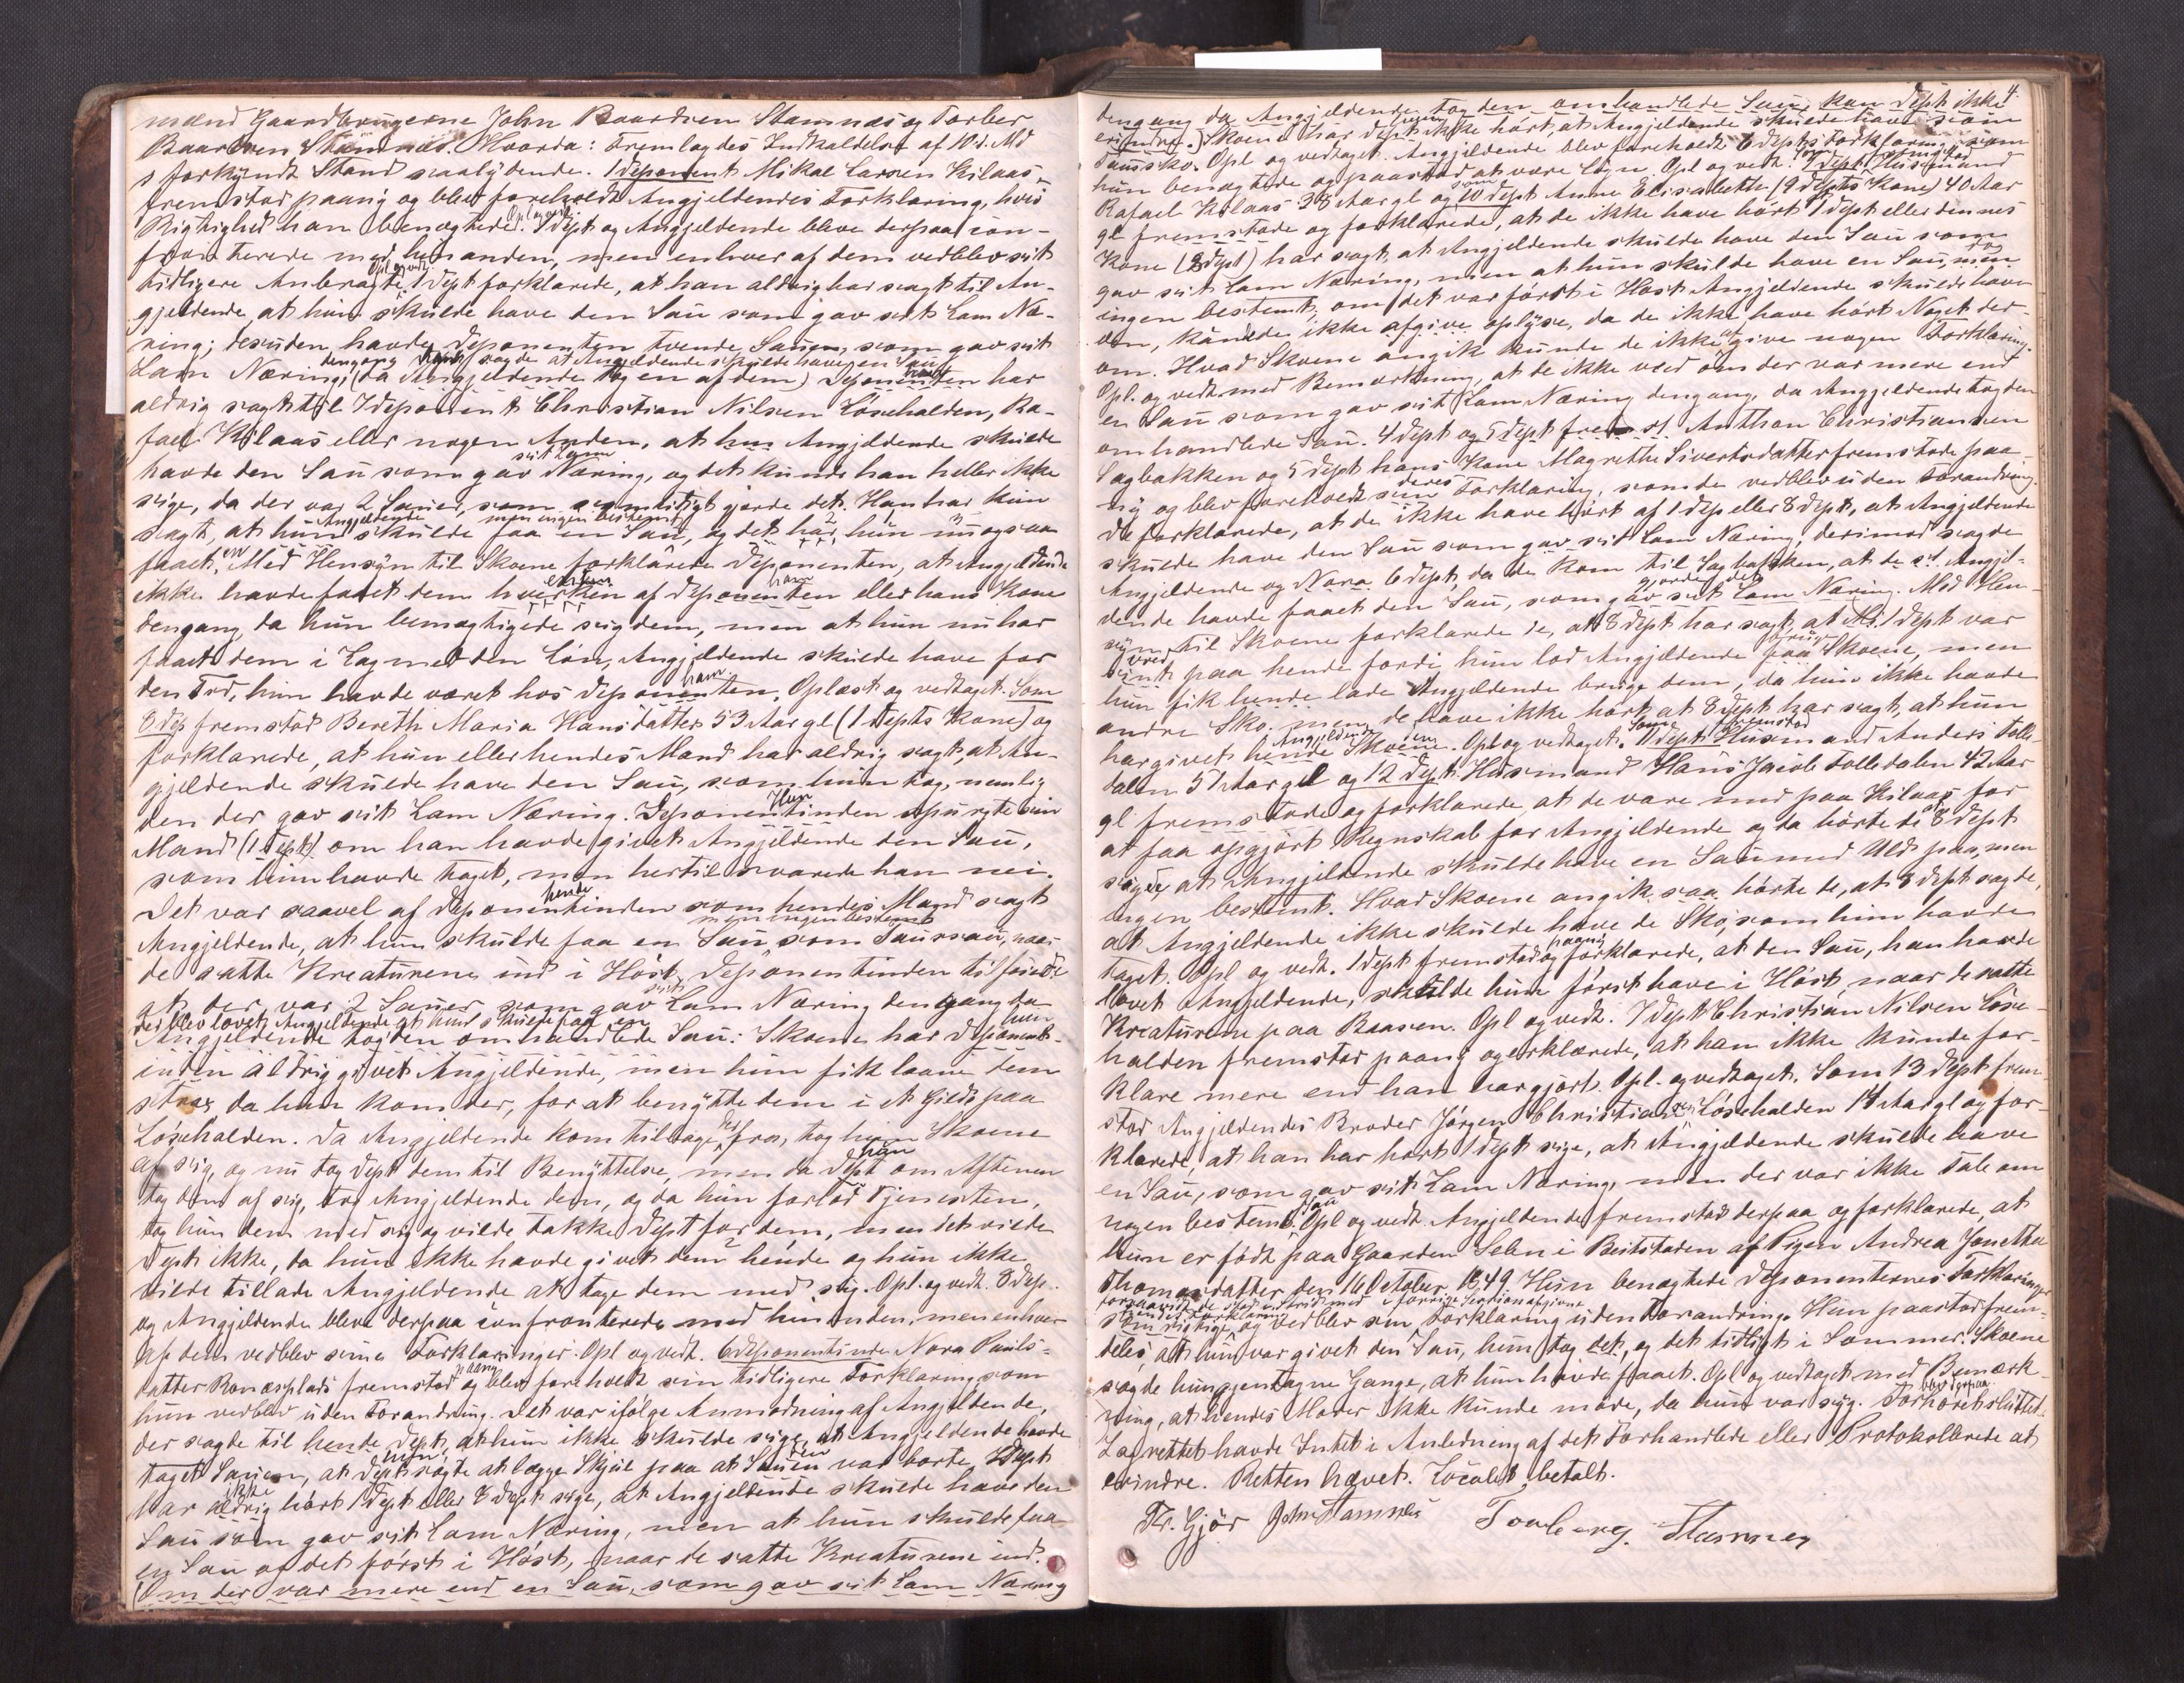 mænd Gaardbrugerne John Baardsen Stamnæs og Torber
Baardsen Stamnæs. Hvorda: Fremlagdes Indkaldelse af 10 d. Md
i forkyndt Stand saalydende. 1 deponent Mikal Larsen Kilaas
fremstod paany og blev foreholdt Angjeldendes Forklaring, hvis
Rigtighed han benægtede. Opl og vedt. 1 dept og Angjeldende bleve derpaa con-
fronterede med hinanden, men enhver af dem vedblev sit
tidligere Anbragte. Opl og vedt. 1 Dept forklarede, at han aldrig har sagt til An-
gjeldende, at hun skulde have den Sau som gav sit Lam Næ-
ring; desuden havde Deponenten tvende Sauer, som gav sit
Lam Næring, dengang sagde at Angjeldende skulde have en Sau (da Angjeldende tog en af dem) Deponenten har
aldrig sagt til 7 deponent Christian Nilsen Løsehalden, Ra-
fael Kilaas eller nogen Anden, at hun Angjeldende skulde
havde den Sau som gav sit Lam Næring, og det kunde han heller ikke
sige, da der var 2 Sauer, som samtidigt gjorde det. Han har kun
sagt, at hun Angjeldende skulde faa en Sau, men ingen bestemt, og det har hun nu ogsaa
faaet en. Med Hensyn til Skoene forklarede Deponenten, at Angjeldende
ikke havde faaet dem hverken af Deponenten ham eller hans Kone
dengang, da hun bemægtigede sig dem, men at hun nu har
faaet dem i Lag med den Løn, Angjeldende skulde have for
den Tid, hun havde været hos Deponenten ham. Oplæst og vedtaget. Som
8 dep fremstod Bereth Maria Hansdatter 53 Aar gl (1 Depts Kone) og
forklarede, at hun eller hendes Mand har aldrig sagt, at An-
gjeldende skulde have den Sau, som hun tog, nemlig
den der gav sit Lam Næring. Deponentinden Hun spurgte sin
Mand (1 Dept) om han havde givet Angjeldende den Sau,
som hun havde taget, men hertil svarede han nei.
Det var saavel af Deponentinden hende som hendes Mand sagt
Angjeldende, at hun skulde faa en Sau men ingen bestemt som Saussau, naar
de satte Kreaturene ind i Høst. Deponentinden tilføiede
at der var 2 Sauer som gav sit Lam Næring dengang da
der blev lovet Angjeldende at hun skulde faa en
Angjeldende tog den omhandlede Sau: Skoene har hun Deponent-
inden aldrig givet Angjeldende, men hun fik laane dem
strax, da hun kom der, for at benytte dem i et Gilde paa
Løsehalden. Da Angjeldende kom tilbage derfra, tog hun Skoene
af sig, og nu tog Dept dem til Benyttelse, men da Dept hun om Aftenen
tog dem af sig, tog Angjeldende dem, og da hun forlod Tjenesten,
tog hun dem med sig og vilde takke Dept for dem, men det vilde
Dept ikke, da hun ikke havde givet dem hende og hun ikke
vilde tillade Angjeldende at tage dem med sig. Opl. og vedt. 8 Dep.
og Angjeldende bleve derpaa confronterede med hinanden, men enhver
af dem vedblev sine Forklaringer. Opl og vedt. 6 deponentinde Nora Pauls-
datter Ronæsplads fremstod paany og blev foreholdt sin tidligere Forklaring som
hun vedblev uden Forandring. Det var ifølge Anmodning af Angjeldende,
der sagde til hende Dept, at hun ikke skulde sige, at Angjeldende havde
taget Sauen, at Dept hun søgte at lægge Skjul paa at Sauen den var borte. Dept
har ikke aldrig hørt 1 Dept eller 8 Dept sige, at Angjeldende skulde have den
Sau som gav sit Lam Næring, men at hun skulde faa
en Sau og det først i Høst, naar de satte Kreaturene ind.
(Om der var mere end en Sau, som gav sit Lam Næring
4.
dengang da Angjeldende tog den omhandlede Sau, kan Dept ikke
erindre.) Skoene har Dept ikke hørt, at Angjeldende skulde have som
Saussko. Opl og vedtaget. Angjeldende blev foreholdt 6 Depts Forklaring, som
hun benægtede og paastod at være Løgn. Opl og vedt. Som 9 dept fremstod Husmand
Rafael Kilaas 38 Aar gl og som 10 dept Anne Elisabeth (9 depts Kone) 40 Aar
gl fremstode og forklarede, at de ikke have hørt 1 Dept eller dennes
Kone (8 Dept) har sagt, at Angjeldende skulde have den Sau som
gav sit Lam Næring, men at hun skulde have en Sau, men dog
ingen bestemt, om det var først i Høst Angjeldende skulde have
den, kunde de ikke afgive oplyse, da de ikke have hørt Noget der-
om. Hvad Skoene angik kunde de ikke afgive nogen Forklaring.
Opl. og vedt med Bemærkning, at de ikke veed om der var mere end
en Sau som gav sit Lam Næring dengang, da Angjeldende tog den
omhandlede Sau. 4 dept og 5 dept frem st Anthon Christiansen
Sagbakken og 5 dept hans Kone Magrethe Sivertsdatter fremstode paa
ny og blev foreholdt sin deres Forklaring, som de vedblev uden Forandring.
De forklarede, at de ikke have hørt af 1 dep eller 8 dept, at Angjeldende
skulde have den Sau som gav sit Lam Næring, derimod sagde
Angjeldende og Nora 6 dept, da de kom til Sagbakken, at de st Angjel-
dende havde faaet den Sau, som gav sit gjorde det Lam Næring. Med Hen
syn til Skoene forklarede de, at 8 dept har sagt, at 1 dept var
vred sint paa hende fordi hun lod Angjeldende faa bruge Skoene, men
hun fik hende lade Angjeldende bruge dem, da hun ikke havde
andre Sko, men de have ikke hørt at 8 dept har sagt, at hun
har givet hende Angjeldende Skoene. Opl og vedtaget. Som 11 dept fremstod Husmand Anders Folle-
dalen 57 Aar gl og 12 dept Husmand Hans Jacob Folledalen 42 Aar
gl fremstode og forklarede, at de vare med paa Kilaas for
at faa opgjort Regnskab for Angjeldende og da hørte de at 8 dept
sagde, at Angjeldende skulde have en Sau med Uld paa, men
ingen bestemt. Hvad Skoene angik, saa hørte de, at 8 dept sagde,
at Angjeldende ikke skulde have de Sko, som hun havde
taget. Opl og vedt. 1 dept fremstod paany og forklarede, at den Sau, han havde
lovet Angjeldende, skulde hun først have i Høst, naar de satte
Kreaturene paa Baasen. Opl og vedt. 7 dept Christian Nilsen Løse-
halden fremstod paany og erklærede, at han ikke kunde for-
klare mere end han har gjort. Opl. og vedtaget. Som 13 Dept frem-
stod Angjeldendes Broder Jørgen Christiansen Løsehalden 14 Aar gl og for-
klarede, at han har hørt 1 dept sige, at Angjeldende skulde have
en Sau, som gav sit Lam Næring, men der var ikke Tale om
nogen bestemt. Opl og vedt. Angjeldende fremstod derpaa og forklarede, at
hun er født paa Gaarden Selen i Beitstaden af Pigen Andrea Janetha
Thomasdatter den 16 October 1849. Hun benægtede Deponenternes Forklaringer
forsaavidt de stod i Strid med i forrige Session afgivne
sin rigtige og vedblev sin Forklaring uden Forandring. Hun paastod frem-
deles, at hun var givet den Sau, hun tog det, og det tidligt i Sommer. Skoene
sagde hun gjentagne Gange, at hun havde faaet. Opl og vedtaget med Bemærk-
ning, at hendes Moder ikke kunde møde, da hun var syg. Forhøret blev derpaa sluttet.
Lagrettet havde Intet i Anledning af det Forhandlede eller Protokollerede at
erindre. Retten hævet. Localet betalt.
Fr. Gjør John Stamnes Torberg. Stamnes